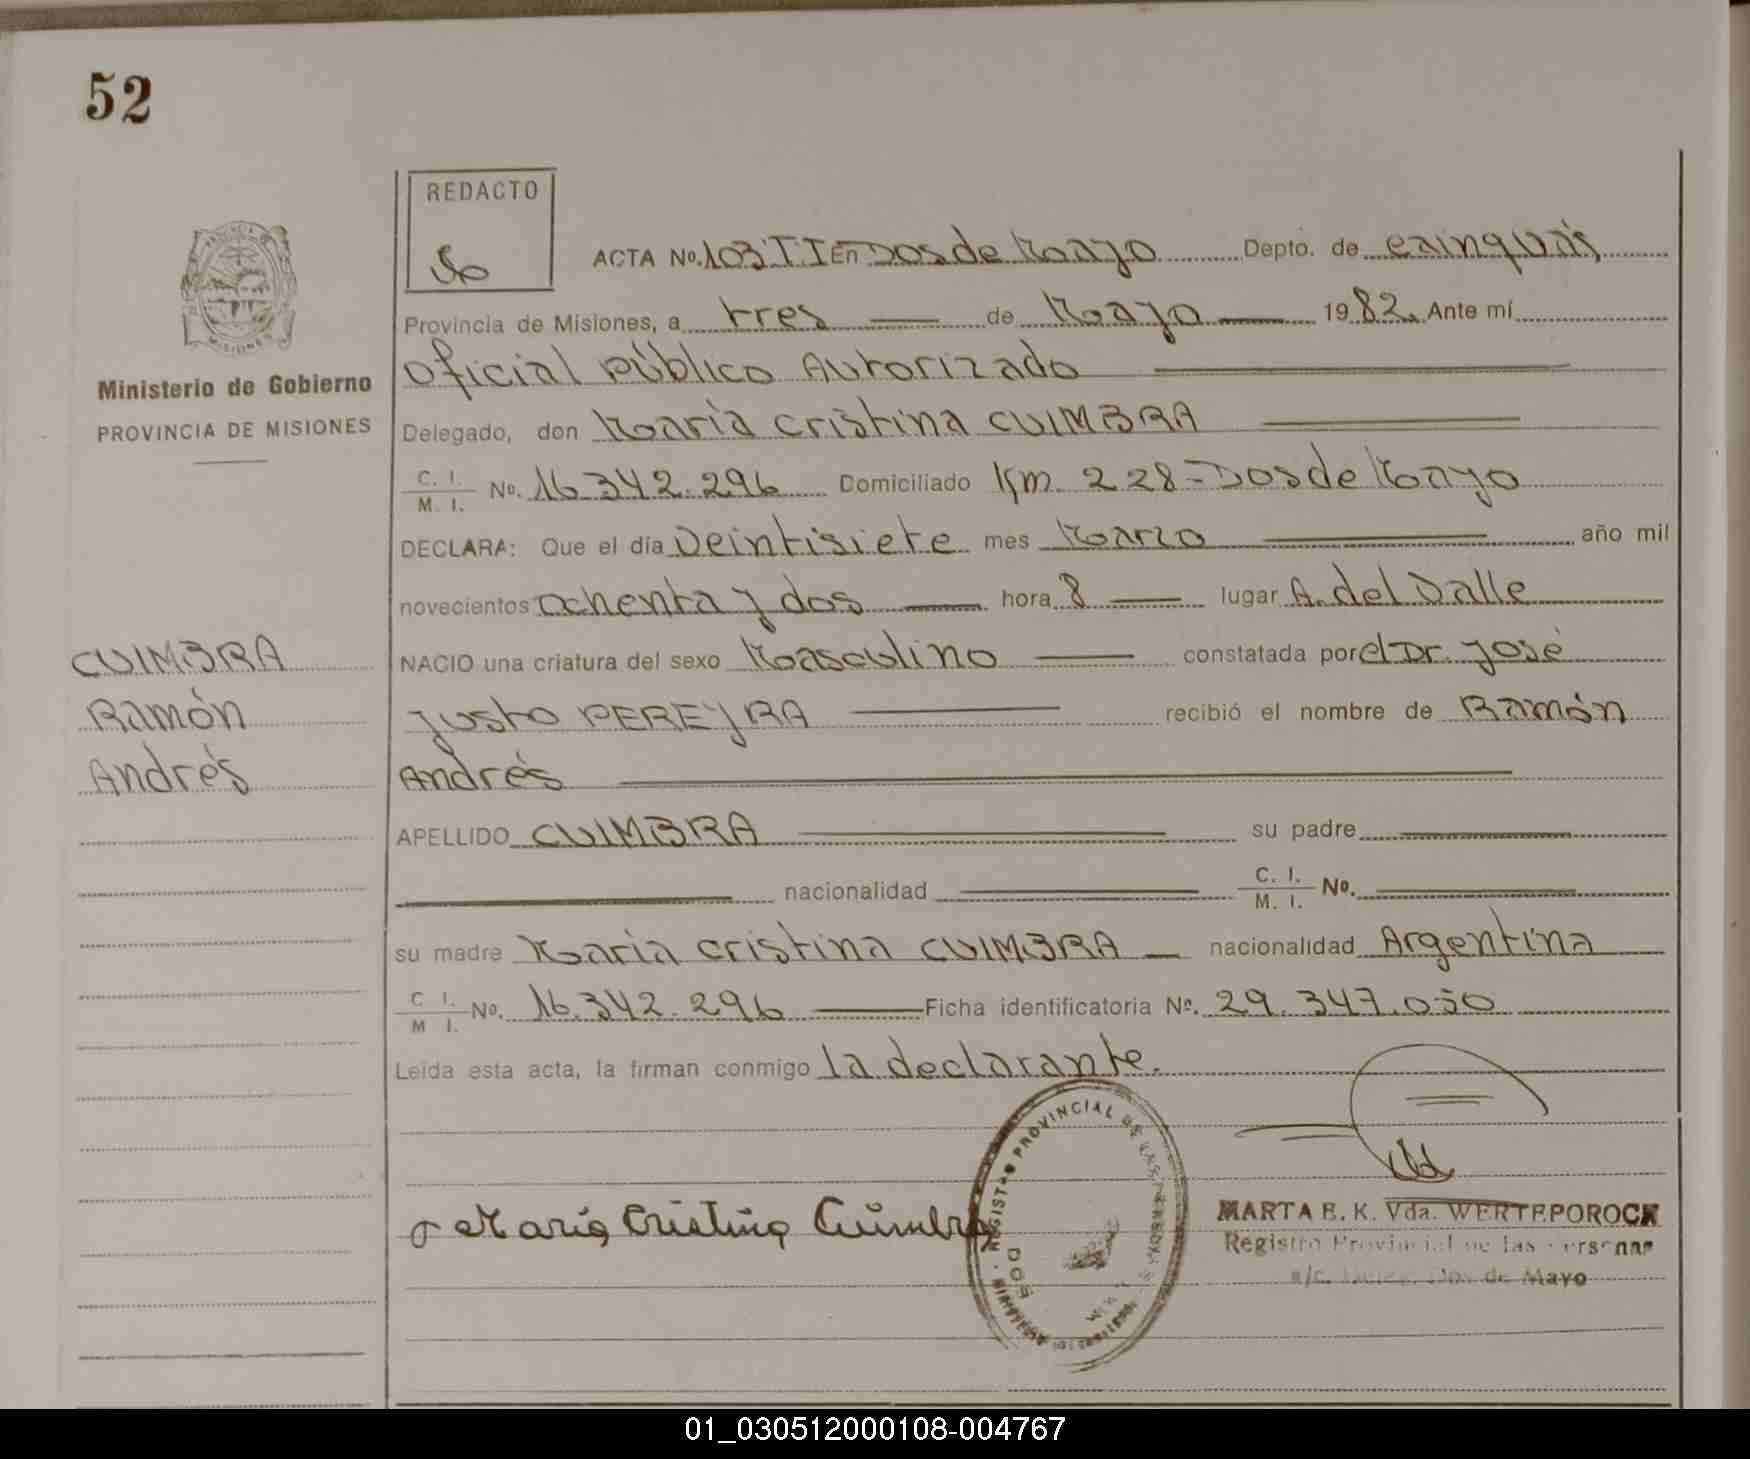 52
REDACTO
ACTA No. 103 TI En Dos de Mayo Depto. de Cainguás
Provincia de Misiones, a tres de Mayo 1982. Ante mí
Oficial Público Autorizado
Ministerio de Gobierno
PROVINCIA DE MISIONES
Delegado, don María Cristina CUIMBRA
C. I. M. I. No. 16.342.296 Domiciliado Km. 228-Dos de Mayo
DECLARA: Que el día Veintisiete mes Marzo año mil
novecientos ochenta y dos hora 8 lugar A. del Valle
CUIMBRA
Ramón
Andrés
NACIO una criatura del sexo Masculino constatada por el Dr. José
Justo PEREYRA recibió el nombre de Ramón
Andrés
APELLIDO CUIMBRA su padre
nacionalidad C. I. M. I. No.
su madre María Cristina CUIMBRA nacionalidad Argentina
C I. M I. No. 16.342.296 Ficha identificatoria No. 29.347.050
Leída esta acta, la firman conmigo la declarante.
María Cristina Cuimbra
REGISTRO PROVINCIAL DE LAS PERSONAS
MARTA E. K. Vda. WERTEPOROCH
Registro Provincial de las Personas
a/c. Deleg. Dos de Mayo
01_030512000108-004767